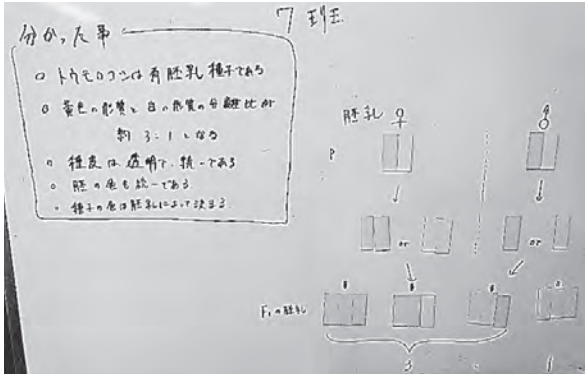 7班
分かった事
○ トウモロコシは有胚乳種子である
○ 黄色の形質と白い形質の分離比が
約 3:1 となる
○ 種皮は透明で、統一である
○ 胚の色も統一である
・ 種子の色は胚乳によって決まる
胚乳 ♀
♂
P
or
or
F₁の胚乳
3
1